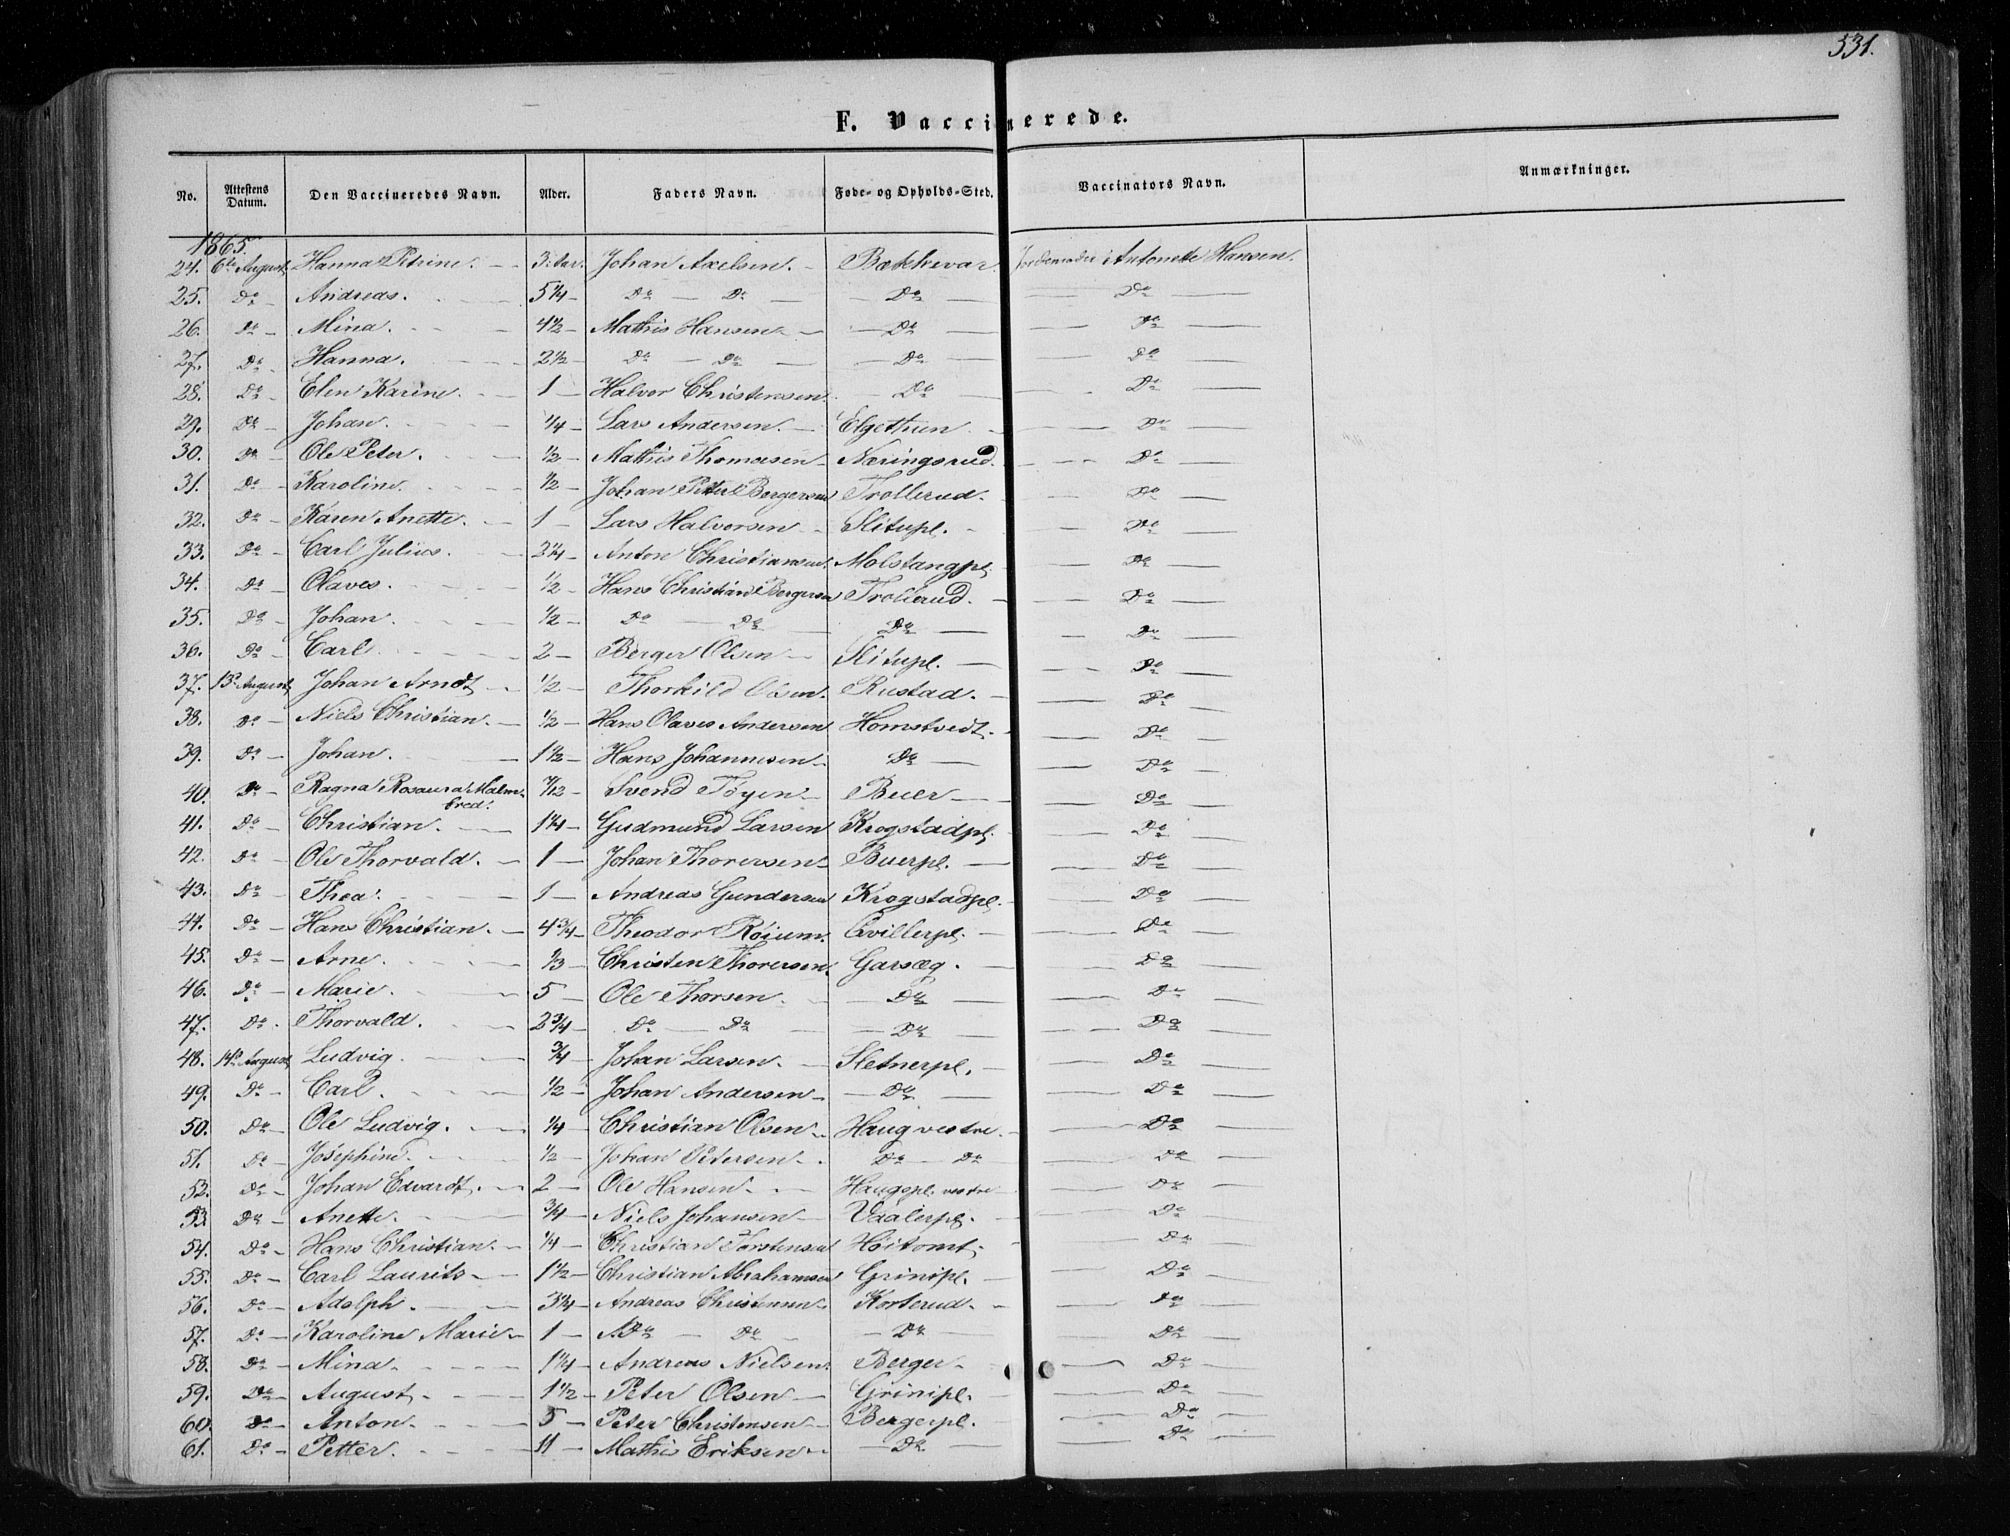 531.
F. Vaccinerede.
No. | Attestens Datum. | Den Vaccineredes Navn. | Alder. | Faders Navn. | Føde- og Opholds-Sted. | Vaccinators Navn. | Anmærkninger.
1865.
24. 6te August Hanna Petrine. 3 Aar. Johan Axelsen. Bækkevar Jordemoder Antonette Hansen.
25. Do Andreas. 5 1/4 Do Do Do Do
26. Do Mina. 4 1/2 Mathis Hansen Do Do
27. Do Hanna. 2 1/2 Do Do Do Do
28. Do Elen Karine. 1 Halvor Christensen. Do Do
29. Do Johan. 1/4 Lars Andersen. Elgethun Do
30. Do Ole Peter. 1/2 Mathis Thomesen Næringsrud. Do
31. Do Karoline. 1/2 Johan Petter Borgersen Trollerud. Do
32. Do Karen Anette. 1 Lars Halvorsen Slitupl. Do
33. Do Carl Julius. 2 1/4 Anton Christiansen. Molstangpl. Do
34. Do Olaves. 1/2 Hans Christian Bergersen Trollerud. Do
35. Do Johan. 1/2 Do Do Do Do
36. Do Carl. 2 Berger Olsen Slitupl. Do
37. 13de August Johan Arndt 1/2 Thorkild Olsen. Rustad. Do
38. Do Niels Christian. 1/2 Hans Olaves Andersen Homstvedt. Do
39. Do Johan. 1 1/2 Hans Johannesen Do Do
40. Do Ragna Rosaura Malm- 7/12 Svend Töyen Buer Do
bred.
41. Do Christian. 1 1/4 Gudmund Larsen Krogstadpl. Do
42. Do Ole Thorvald. 1 Johan Thoresen Buerpl. Do
43. Do Thea. 1 Andreas Gundersen Krogstadpl. Do
44. Do Hans Christian. 4 3/4 Theodor Röium. Qvillerpl. Do
45. Do Arne. 1/3 Christen Thoresen. Garsæg. Do
46. Do Marie. 5 Ole Thorsen. Do Do
47. Do Thorvald. 2 3/4 Do Do Do Do
48. 14de August Ludvig. 3/4 Johan Larsen. Sletnerpl. Do
49. Do Carl. 1/2 Johan Andersen Do Do
50. Do Ole Ludvig. 1/4 Christian Olsen Haug vestre Do
51. Do Josephine. 1/2 Johan Petersen Do Do Do
52. Do Johan Edvardt. 2 Ole Hansen Haugpl. vestre Do
53. Do Anette. 3/4 Niels Johansen Vaalerpl. Do
54. Do Hans Christian. 1/4 Christian Torstensen Höitomt Do
55. Do Carl Laurits 1 1/2 Christian Abrahamsen Grinipl. Do
56. Do Adolph. 3 1/4 Andreas Christensen Korterud. Do
57. Do Karoline Marie 1 Do Do Do Do
58. Do Mina. 1 1/4 Andreas Nielsen. Berger. Do
59. Do August. 1 1/2 Peter Olsen Grinipl. Do
60. Do Anton. 5 Peter Christensen Bergerpl. Do
61. Do Petter. 11 Mathis Eriksen Do Do